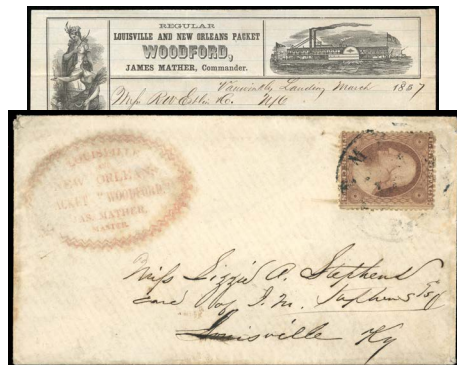 REGULAR
LOUISVILLE AND NEW ORLEANS PACKET
WOODFORD,
JAMES MATHER, Commander.
Landing March 1857
Mess R W Estlin & Co. N/O
LOUISVILLE
NEW ORLEANS
PACKET "WOODFORD"
JAS. MATHER,
MASTER.
Miss Lizzie A. Stephens
care of J. M. Stephens Esq
Louisville Ky